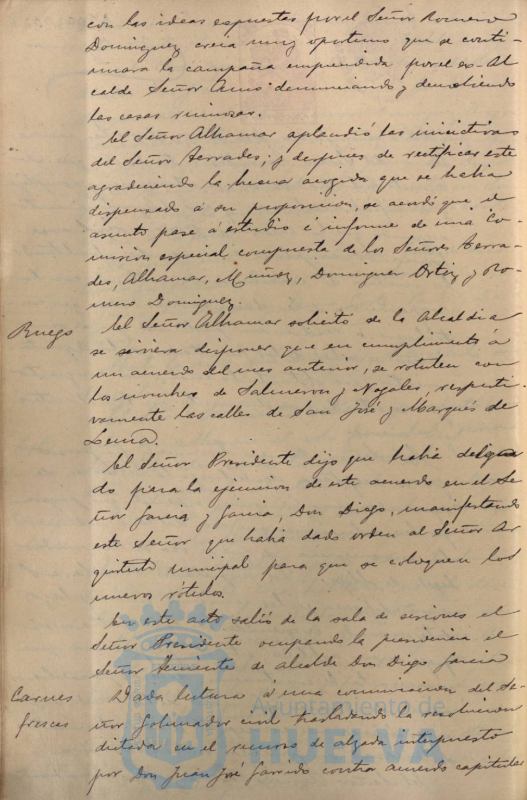 con las ideas expuestas por el Señor Romero
Dominguez creia muy oportuno que se conti-
nuara la campaña emprendida por el ex-Al
calde Señor denunciando y demoliendo
las casas ruinosas.
El Señor Alhamar aplaudió las iniciativas
del Señor Terrades; y despues de rectificar este
agradeciendo la buena acogida que se habia
dispensado á su proposicion, se acordó que el
asunto pase á estudio é informe de una Co-
mision especial compuesta de los Señores Terra-
des, Alhamar, Muñoz, Dominguez Ortiz y Ro-
mero Dominguez.
Ruego
El Señor Alhamar solicitó de la Alcaldia
se sirviera disponer que en cumplimiento á
un acuerdo del mes anterior, se rotulen con
los nombres de Salmeron y Nogales, respecti-
vamente las calles de San José y Marqués de
El Señor Presidente dijo que habia delega
do para la ejecucion de este acuerdo en el Se-
ñor Garcia y Garcia, Don Diego, manifestando
este Señor que habia dado orden al Señor Ar
quitecto municipal para que se coloquen los
nuevos rótulos.
En este acto salió de la sala de sesiones el
Señor Presidente ocupando la presidencia el
Señor Teniente de alcalde Don Diego Garcia
Carnes
frescas
Dada lectura á una comunicacion del Se-
ñor Gobernador civil trasladando la resolucion
dictada en el recurso de alzada interpuesto
por Don Juan José Garrido contra acuerdo capitular
Ayuntamiento de
HUELVA